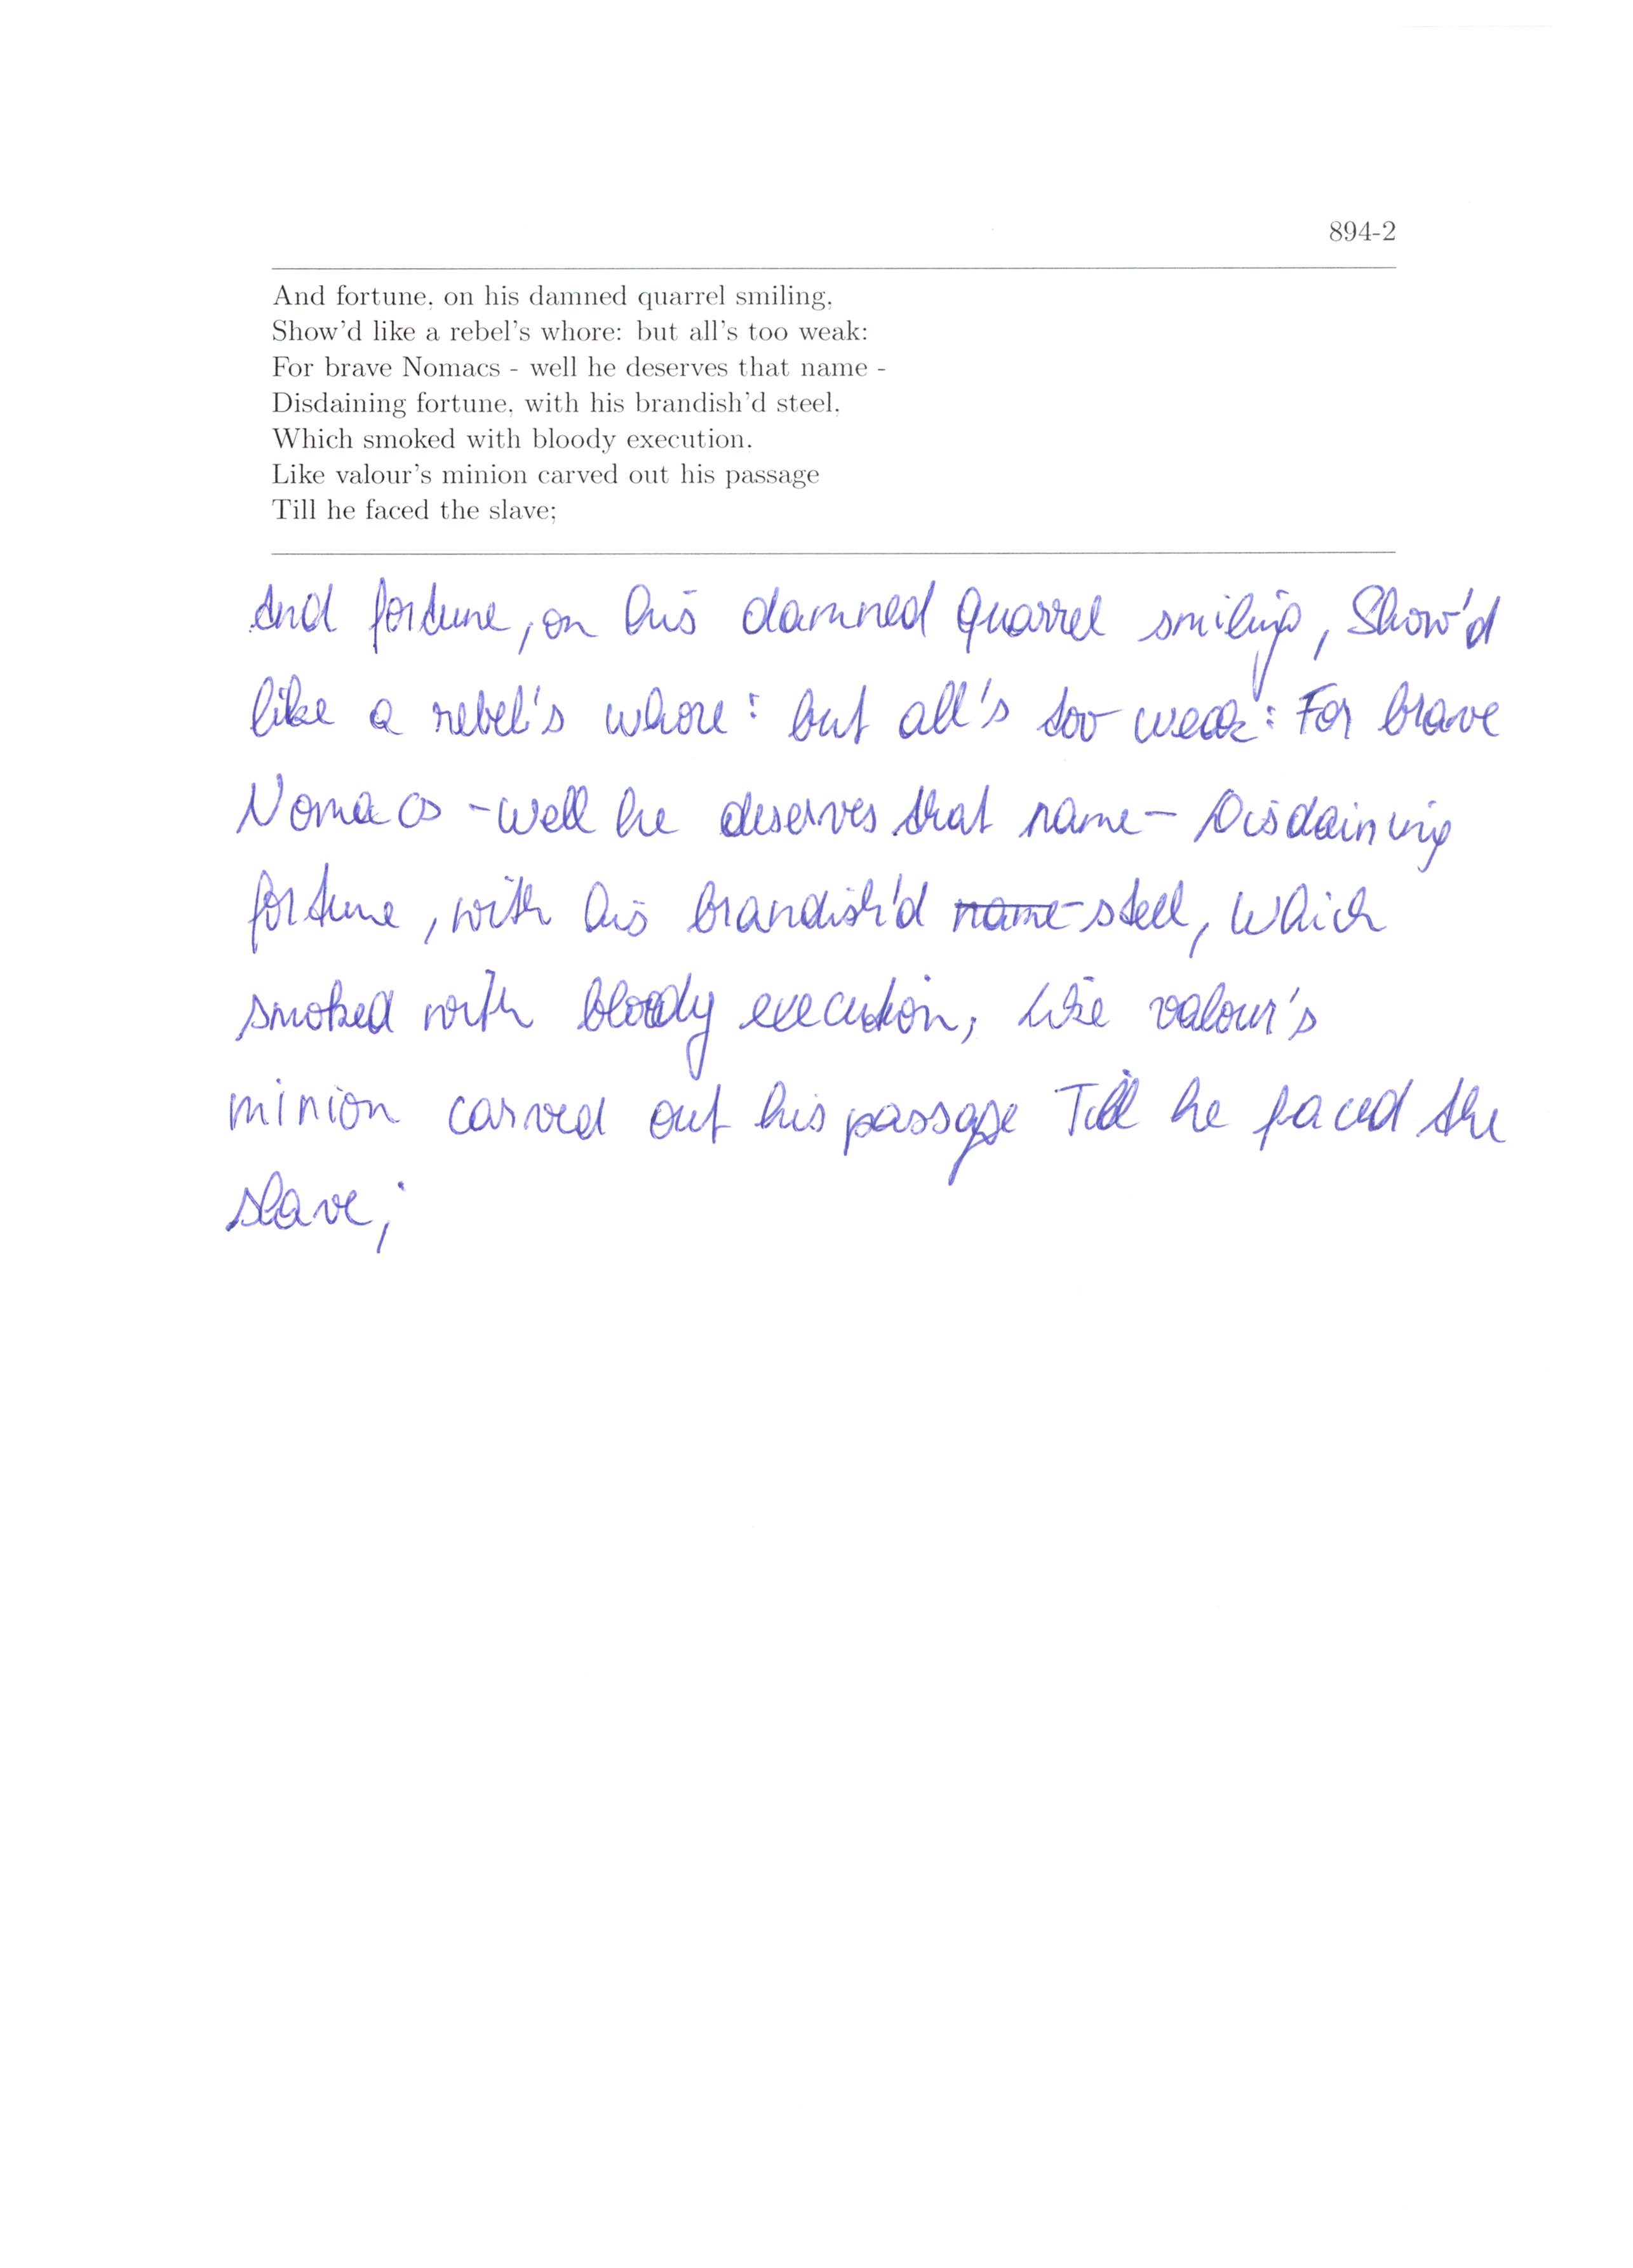 894-2
And fortune, on his damned quarrel smiling,
Show'd like a rebel's whore: but all's too weak:
For brave Nomacs - well he deserves that name -
Disdaining fortune, with his brandish'd steel,
Which smoked with bloody execution.
Like valour's minion carved out his passage
Till he faced the slave;
And fortune, on his damned quarrel smiling, Show'd
like a rebel's whore: but all's too weak: For brave
Nomacs - well he deserves that name - Disdaining
fortune, with his brandish'd name steel, Which
smoked with bloody execution, Like valour's
minion carved out his passage Till he faced the
slave;